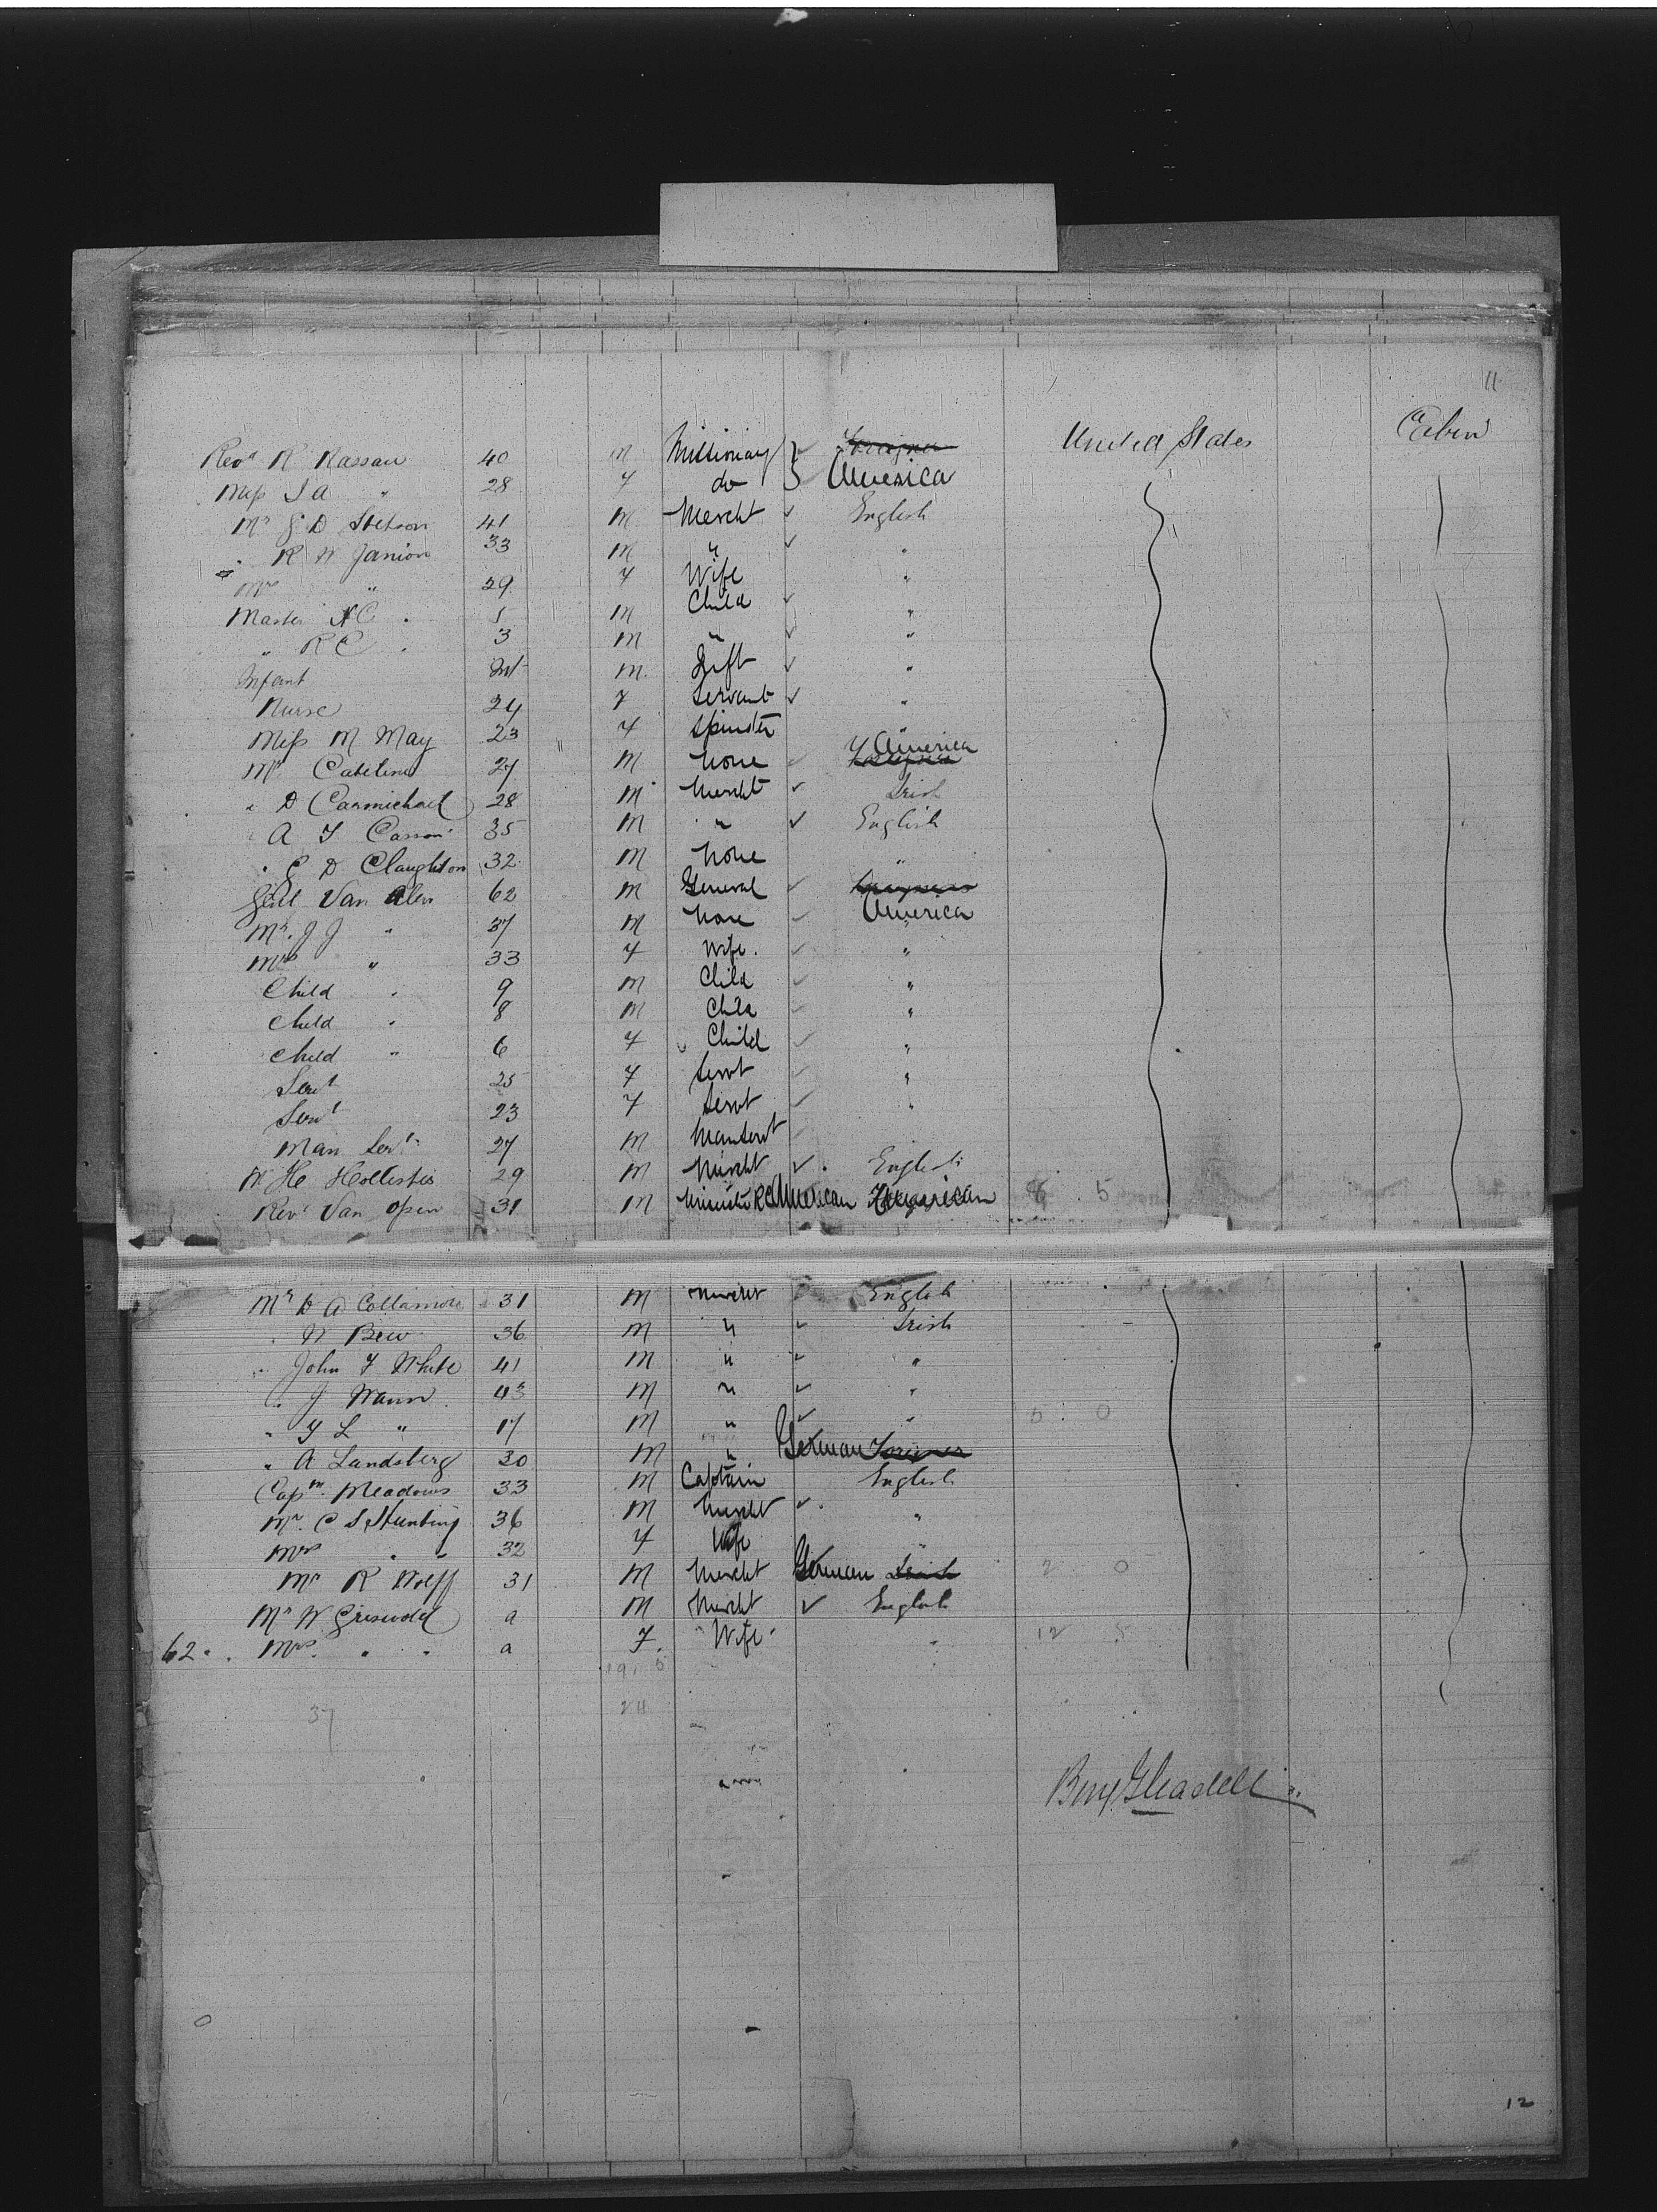 11
United States Cabin
Revd R Nassau 40 M Missionary Foreigner
Miss I A " 28 F do America
Mr G D Stetson 41 M Mercht English
" R W Janion 33 M " "
Mrs " 29 F Wife "
Master N C " 5 M Child "
" R C " 3 M " "
Infant Inf M "
Nurse 24 F Servant "
Miss M May 23 F Spinster "
America
Mr 27 M None Foreigner
" D Carmichael 28 M Mercht Irish
" A T Casson 35 M " English
" G D Claughton 32 M None "
Genl Van Alen 62 M General
America
Mr J J " 37 M None "
Mrs " 33 F Wife "
Child " 9 M Child "
Child " 8 M Child "
Child " 6 F Child "
Servt 25 F Servt "
Servt 23 F Servt "
Man Servt 27 M Manservt
W He Hollister 29 M Mercht English
Revd Van Open 31 M Minister RC American 8 5
Mr D A Collamore 31 M Mercht English
" N Bew 36 M " Irish
" John F White 41 M " "
" J Wann 43 M " "
" T L " 17 M " " 5 0
" A Landsberg 30 M " German Foreigner
Capn Meadows 33 M Captain English
Mr C S Hunting 36 M Mercht "
Mrs " " 32 F Wife "
Mr R Wolff 31 M Mercht German Irish 2 0
Mr W Griswold a M Mercht English
62 Mrs " " a F Wife " 12 5
19 5
37 24
Benj Gleadell
12